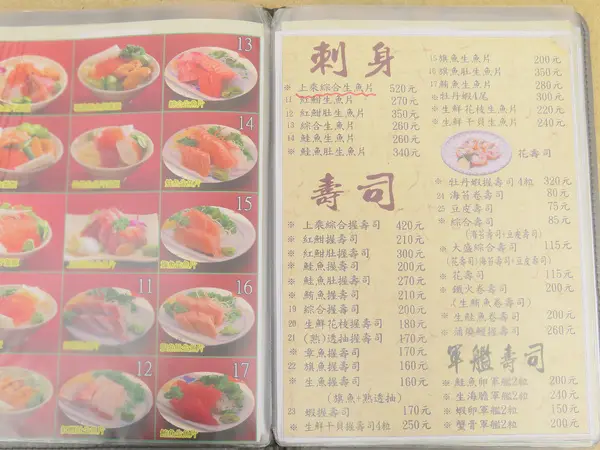 13
14
15
11
16
12
17
刺身
※ 上乘綜合生魚片 520元
11 紅魽生魚片 270元
12 紅魽肚生魚片 350元
13 綜合生魚片 260元
14 鮭魚生魚片 260元
※ 鮭魚肚生魚片 340元
15 旗魚生魚片 200元
16 旗魚肚生魚片 350元
17 鮪魚生魚片 280元
※ 牡丹蝦4尾 300元
※ 生鮮花枝生魚片 220元
※ 生鮮干貝生魚片 240元
花壽司
壽司
※ 上乘綜合握壽司 420元
※ 紅魽握壽司 210元
※ 紅魽肚握壽司 300元
※ 鮭魚握壽司 200元
※ 鮭魚肚握壽司 270元
※ 鮪魚握壽司 210元
19 綜合握壽司 200元
20 生鮮花枝握壽司 180元
21 (熟)透抽握壽司 170元
※ 章魚握壽司 170元
22 旗魚握壽司 160元
※ 生魚握壽司 160元
(旗魚+熟透抽)
23 蝦握壽司 170元
※ 生鮮干貝握壽司4粒 250元
※ 牡丹蝦握壽司4粒 320元
24 海苔卷壽司 80元
25 豆皮壽司 75元
※ 綜合壽司 85元
(海苔壽司+豆皮壽司)
※ 大盛綜合壽司 115元
(花壽司/海苔壽司+豆皮壽司)
※ 花壽司 115元
※ 鐵火卷壽司 200元
(生鮪魚卷壽司)
※ 生鮭魚卷壽司 200元
※ 蒲燒鰻握壽司 260元
軍艦壽司
※ 鮭魚卵軍艦2粒 200元
※ 生海膽軍艦2粒 240元
※ 蝦卵軍艦2粒 150元
※ 蟹膏軍艦2粒 200元